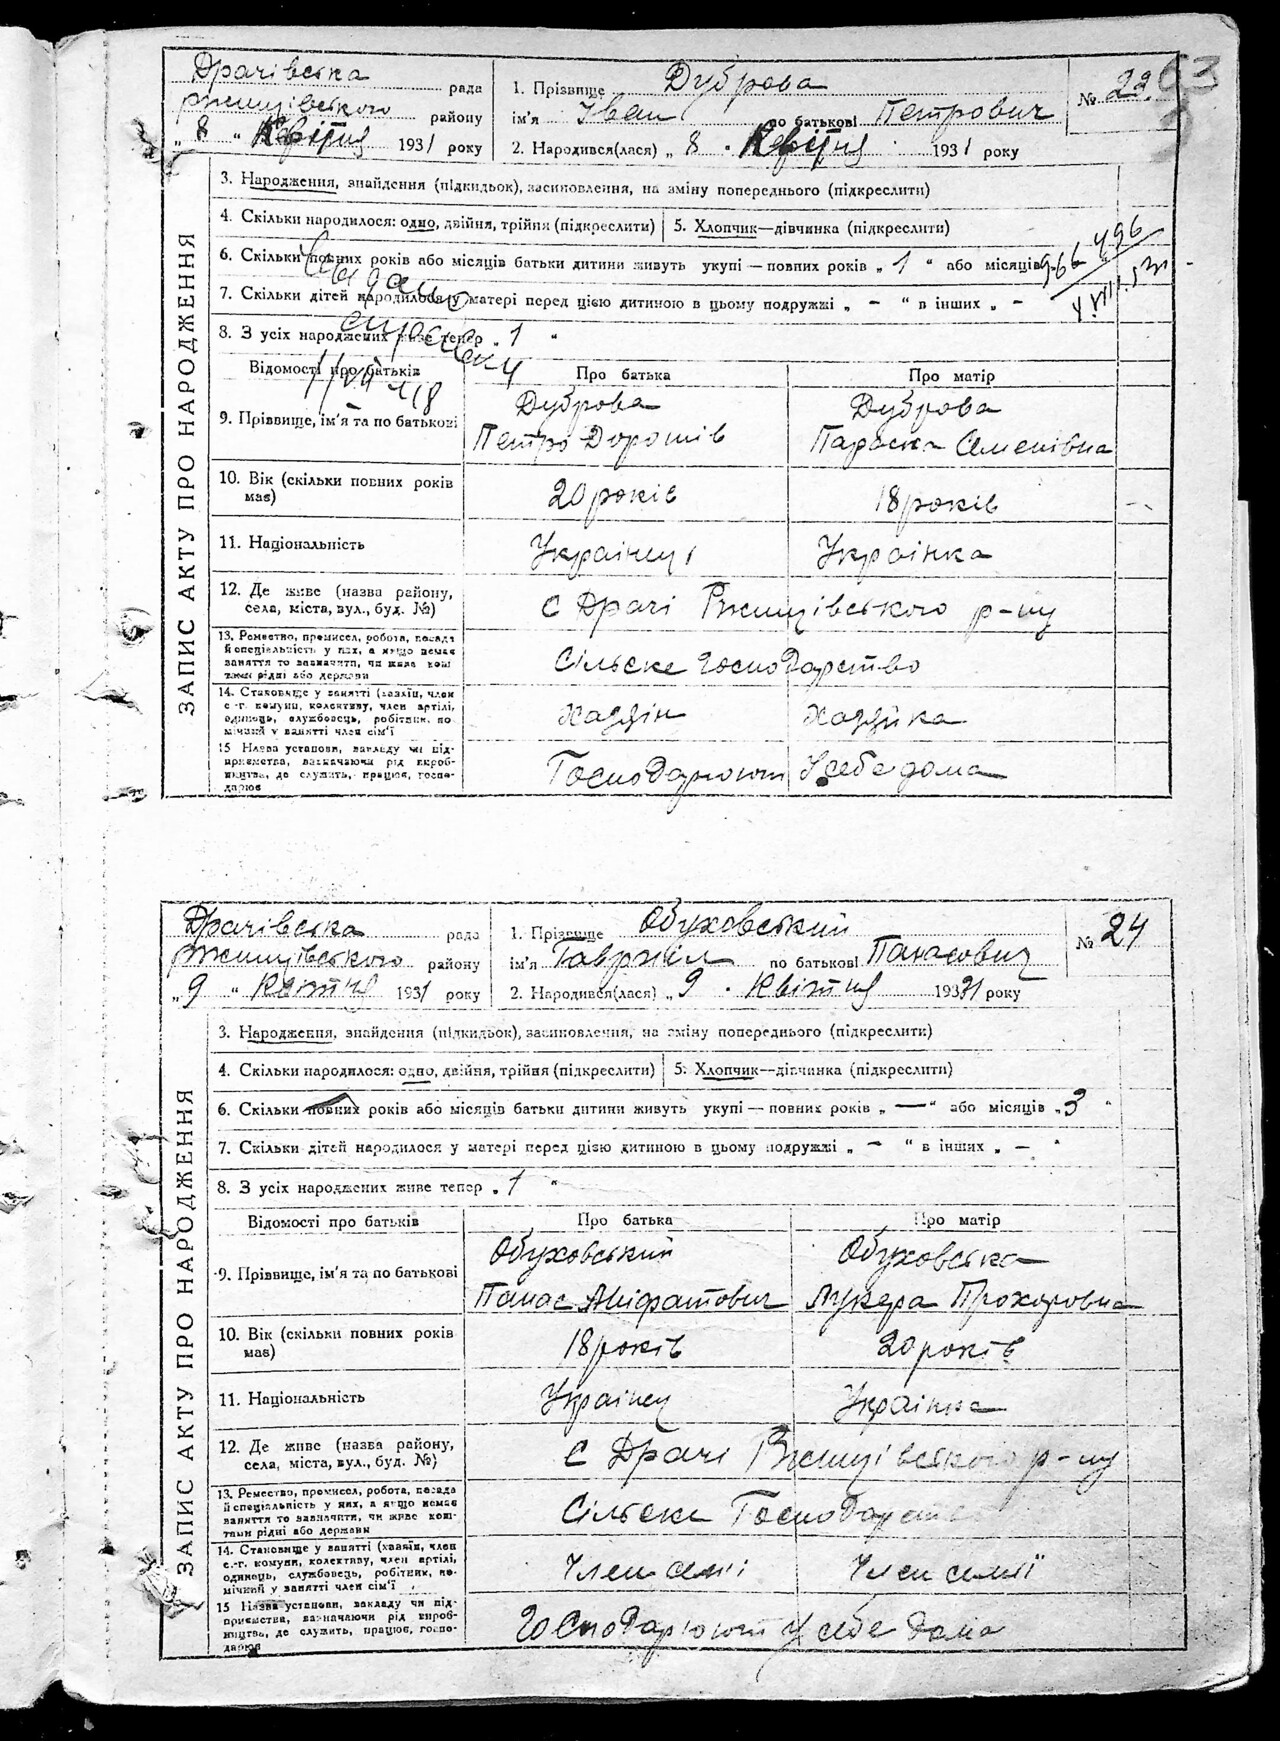 63
Драчівська рада
Ржищівського району
„ 8 “ Квітня 1931 року
1. Прізвище Дуброва
ім'я Іван по батькові Петрович
2. Народився(лася) „ 8 “ Квітня 1931 року
№ 22
ЗАПИС АКТУ ПРО НАРОДЖЕННЯ
3. Народження, знайдення (підкидьок), засиновлення, на зміну попереднього (підкреслити)
4. Скільки народилося: одно, двійня, трійня (підкреслити)
5. Хлопчик—дівчинка (підкреслити)
6. Скільки повних років або місяців батьки дитини живуть укупі — повних років „ 1 “ або місяців
7. Скільки дітей народилося у матері перед цією дитиною в цьому подружжі „ – “ в інших „ –
8. З усіх народжених живе тепер „ 1 “
Відомості про батьків
Про батька
Про матір
9. Прізвище, ім'я та по батькові
Дуброва
Петро Дорошів
Дуброва
Параска Семенівна
10. Вік (скільки повних років має)
20 років
18 років
11. Національність
Українець
Українка
12. Де живе (назва району, села, міста, вул., буд. №)
С Драчі Ржищівського р-ну
13. Ремество, промисел, робота, посада й спеціальність у них, а якщо немає заняття то зазначити, чи живе коштами рідні або держави
Сільске Господарство
14. Становище у занятті (хазяїн, член с.-г. комуни, колективу, член артілі, одинець, службовець, робітник, помічний у занятті член сім'ї
Хазяїн
Хазяйка
15 Назва установи, закладу чи підприємства, зазначаючи рід виробництва, де служить, працює, господарює
Господарюют У себе дома
Драчівська рада
Ржищівського району
„ 9 “ Квітня 1931 року
1. Прізвище Обуховський
ім'я Гавриіл по батькові Панасович
2. Народився(лася) „ 9 “ Квітня 1931 року
№ 24
ЗАПИС АКТУ ПРО НАРОДЖЕННЯ
3. Народження, знайдення (підкидьок), засиновлення, на зміну попереднього (підкреслити)
4. Скільки народилося: одно, двійня, трійня (підкреслити)
5. Хлопчик—дівчинка (підкреслити)
6. Скільки повних років або місяців батьки дитини живуть укупі — повних років „ — “ або місяців „ 3 “
7. Скільки дітей народилося у матері перед цією дитиною в цьому подружжі „ – “ в інших „ – “
8. З усіх народжених живе тепер „ 1 “
Відомості про батьків
Про батька
Про матір
9. Прізвище, ім'я та по батькові
Обуховський
Панас Аніфатович
Обуховська
Лукера Прохоровна
10. Вік (скільки повних років має)
18 років
20 років
11. Національність
Українец
Українка
12. Де живе (назва району, села, міста, вул., буд. №)
С Драчі Ржищівського р-ну
13. Ремество, промисел, робота, посада й спеціальність у них, а якщо немає заняття то зазначити, чи живе коштами рідні або держави
Сільске Господарство
14. Становище у занятті (хазяїн, член с.-г. комуни, колективу, член артілі, одинець, службовець, робітник, помічний у занятті член сім'ї
Член семї
Член семії
15 Назва установи, закладу чи підприємства, зазначаючи рід виробництва, де служить, працює, господарює
Господарюют У себе дома